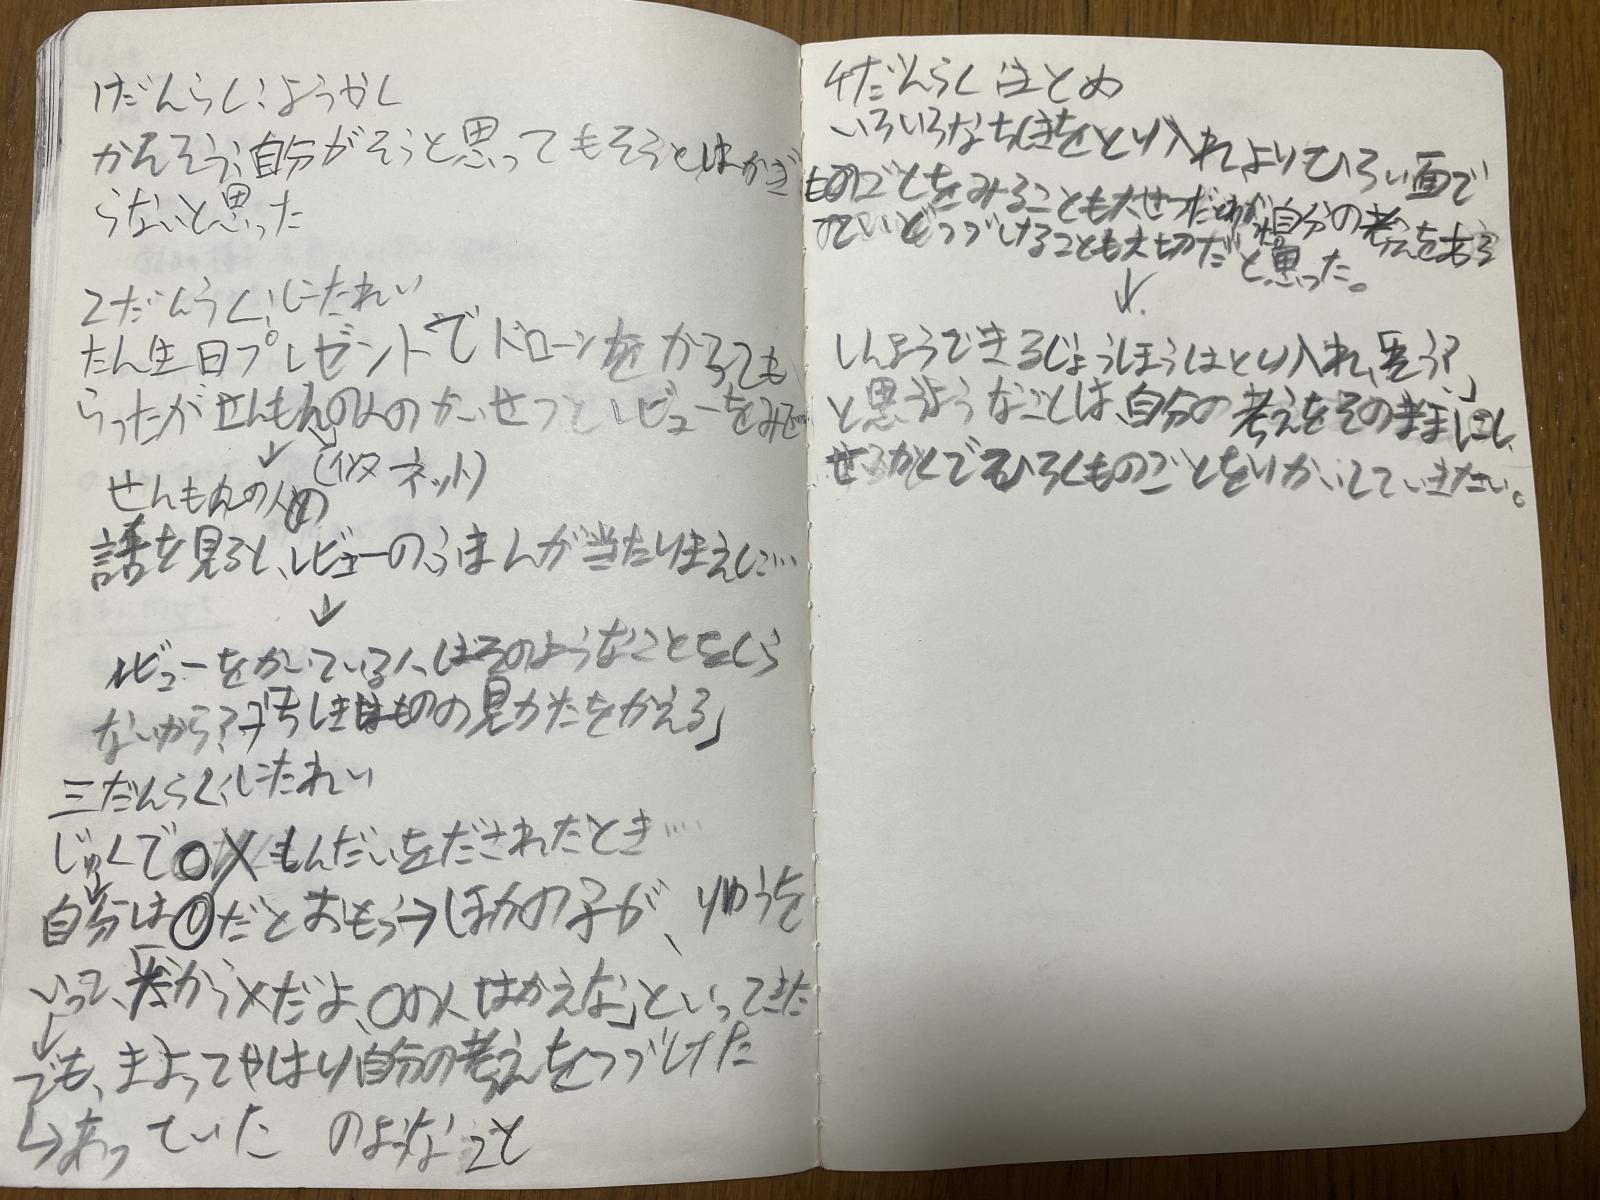 1だんらく:ようやく
かんそう、自分がそうと思ってもそうとはかぎ
らないと思った
2だんらく:にたれい
たん生日プレゼントでドローンをかっても
らったがせんもんの人のかいせつとレビューをみて…
↓
(インターネット)
せんもんの人の
話を見ると、レビューのうほんが当たりまえに…
↓
レビューをかいている人はそのようなことをしら
ないから?→「ちしきはものの見かたをかえる」
三だんらく、にたれい
じゅくで○×もんだいをだされたとき…
↓
自分は○だとおもう→ほかの子が、りゆうを
いって、「だから×だよ、○の人はかえな」といってきた
↓
でも、まよってやはり自分の考えをつづけた
↳あっていた のようなこと
4だんらく まとめ
いろいろなちしきをとり入れよりひろい面で
ものごとをみることも大せつだとが自分の考えをある
ていどつづけることも大切だと思った。
↓
しんようできるじょうほうはとり入れ、「そう?」
と思うようなことは、自分の考えをそのままにし、
せっかくでひろくものごとをりかいしていきたい。